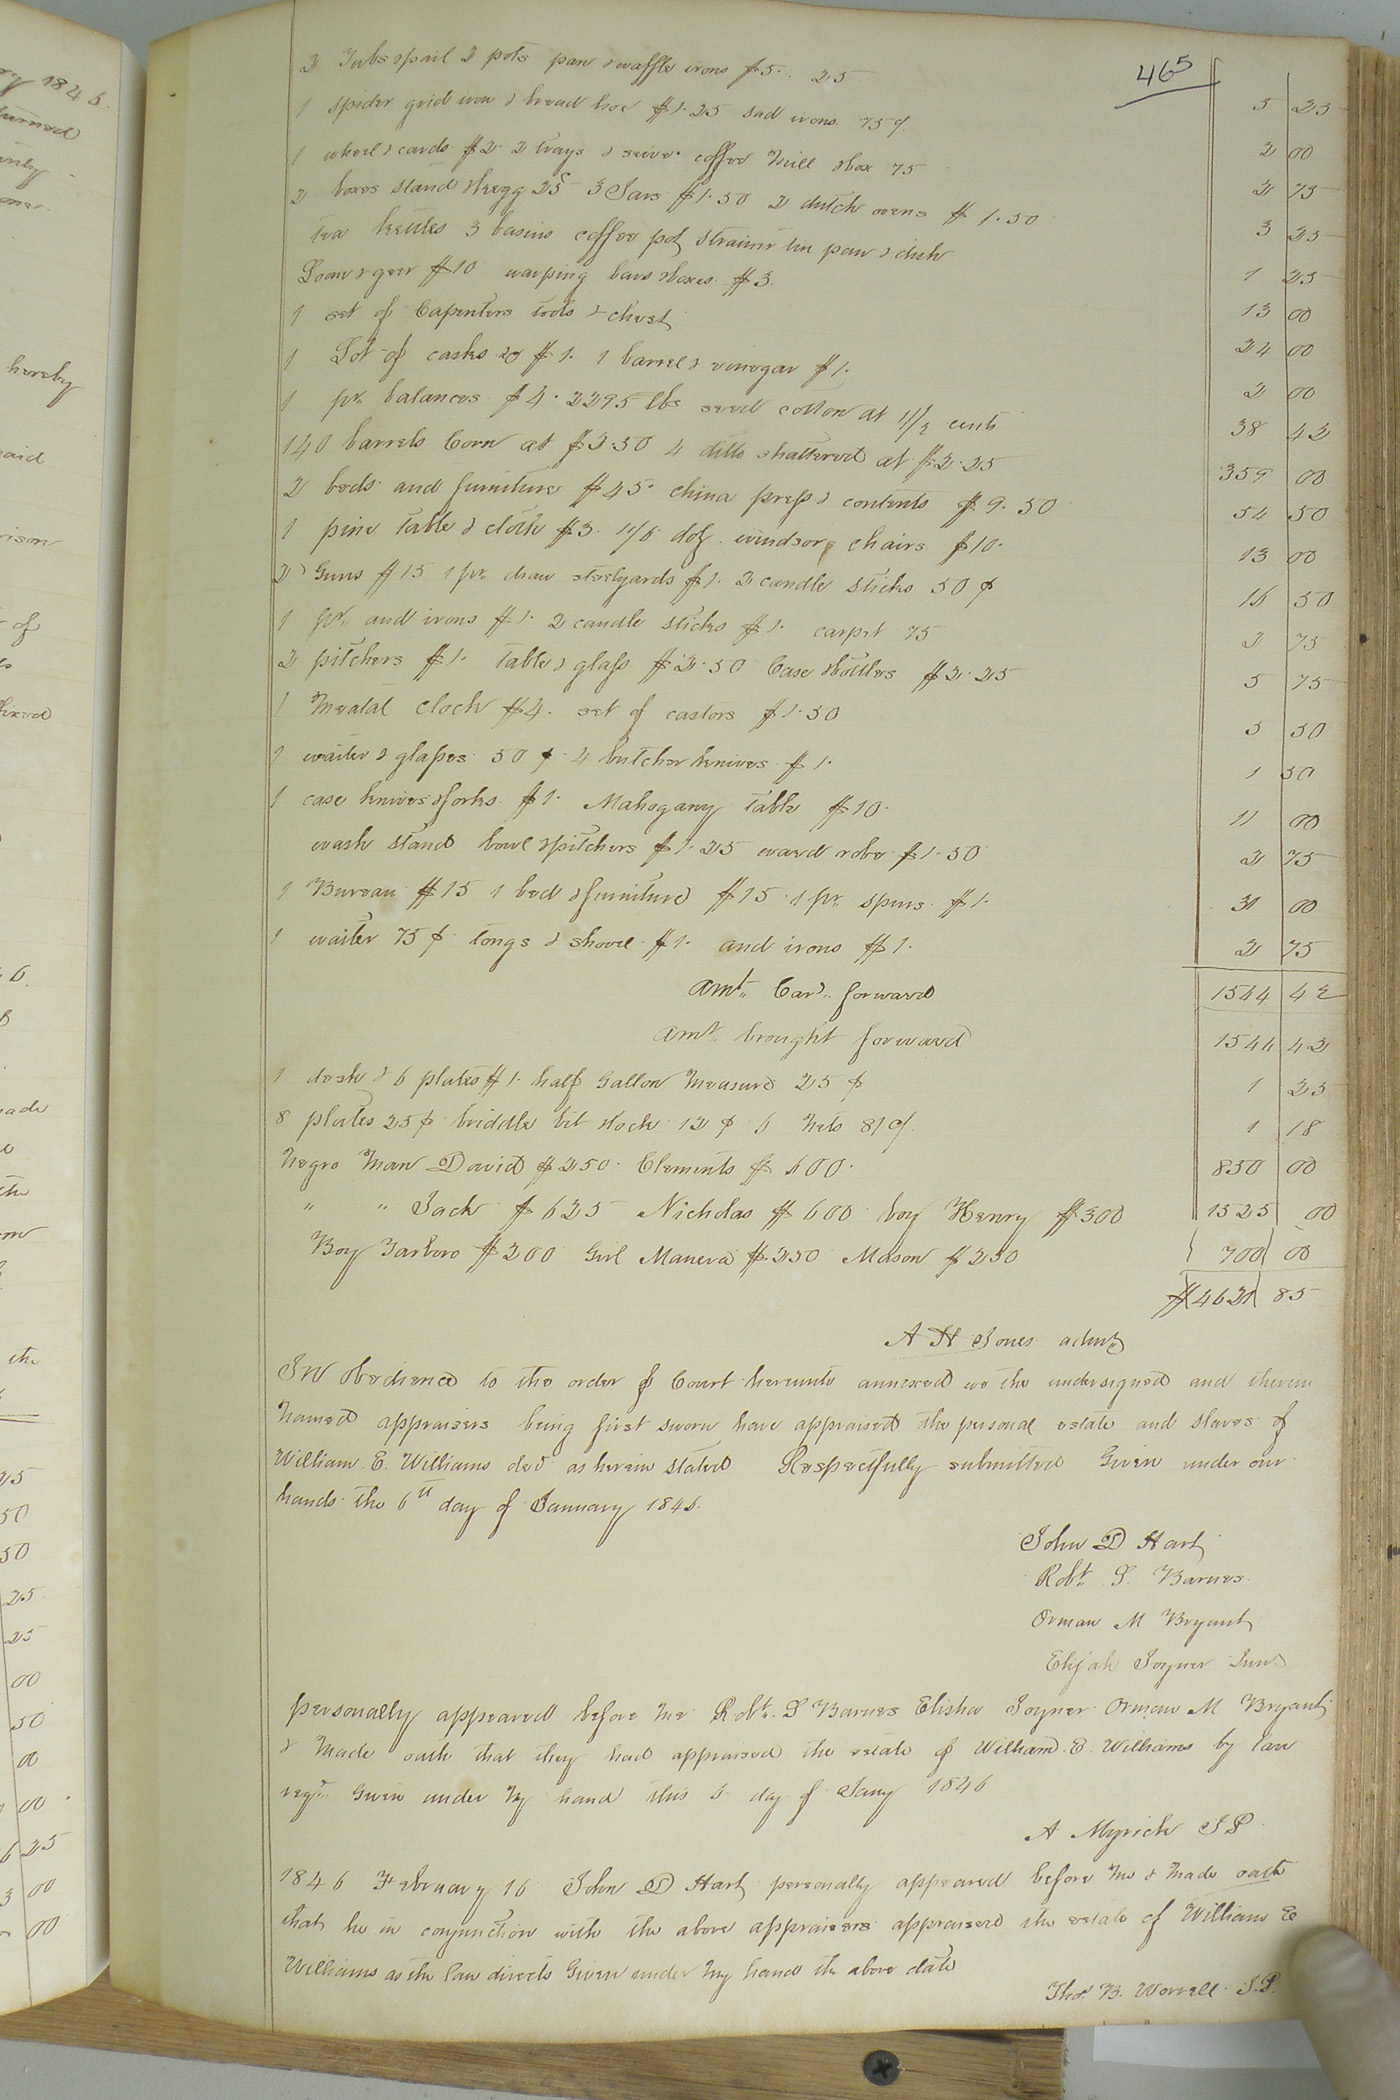 465
2 Tubs & pail 2 pots pan & waffle irons $5. 25 5 25
1 spider grid iron & broad hoe $1.25 sad irons 75 ¢ 2 00
1 wheel & cards $2. 2 trays & seive coffee Mill & box 75 2 75
2 boxes stand & kegg 25 3 Jars $1.50 2 dutch ovens $1.50 3 25
tea kettles 3 basins coffee pot strainer tin pan & dish 1 25
Loom & geer $10 warping bars & boxes $3 13 00
1 set of Capenters tools & chest 24 00
1 Lot of casks &c $1. 1 barrel & venegar $1. 2 00
1 pr. balances $4. 2295 lbs seed cotton at 1 1/2 cents 38 42
140 barrels Corn at $2.50 4 ditto shattered at $2.25 359 00
2 beds and furniture $45. china press & contents $9.50 54 50
1 pine table & cloth $3. doz. windsor chairs $10. 13 00
2 Guns $15 1 pr. draw steelyards $1. 2 candle sticks 50 ¢ 16 50
1 pr. and irons $1. 2 candle sticks $1. carpet 75 2 75
2 pitchers $1. table & glass $2.50 Case & bottles $2.25 5 75
1 Meatal clock $4. set of castors $1.50 5 50
1 waiter & glasses 50 ¢ 4 butcher knives $1. 1 50
1 case knives & forks $1. Mahogany table $10. 11 00
wash stand bowl & pitchers $1.25 ward robe $1.50 2 75
1 Bureau $15 1 bed & furniture $15 1 pr. spurs $1. 31 00
1 waiter 75 ¢ tongs & shovel $1. and irons $1. 2 75
Amt. Card. forward 1544 42
Amt. brought forward 1544 42
1 desk & 6 plates $1. half Gallon Measure 25 ¢ 1 25
8 plates 25 ¢ briddle bit & lock 12 ¢ 6 81 ¢ 1 18
Negro Man David $250. Clements $600. 850 00
" " Jack $625 Nicholas $600 boy Henry $300 1525 00
Boy Tarboro $200 Girl Manerva $250 Mason $250 700 00
$4621 85
A H Jones admr
In obedience to the order of Court hereunto annexed we the undersigned and therein
named appraisers being first sworn have appraised the personal estate and slaves of
William E. Williams decd as herein stated Respectfully submitted Given under our
hands the 6th day of January 1846.
John D Hart
Robt. S. Barnes
Orman M Bryant
Elijah Joyner Junr
personally appeared before me Robt. S Barnes Elisha Joyner Orman M Bryant
& Made oath that they had appraised the estate of William E. Williams by law
reqd. Given under My hand this 6 day of Jany 1846
A Myrick J P
1846 February 16 John D Hart personally appeared before Me & Made oath
that he in conjunction with the above appraisers appraised the estate of William E
Williams as the law directs Given under My hand the above date
Thos. B. Worrell J.P.